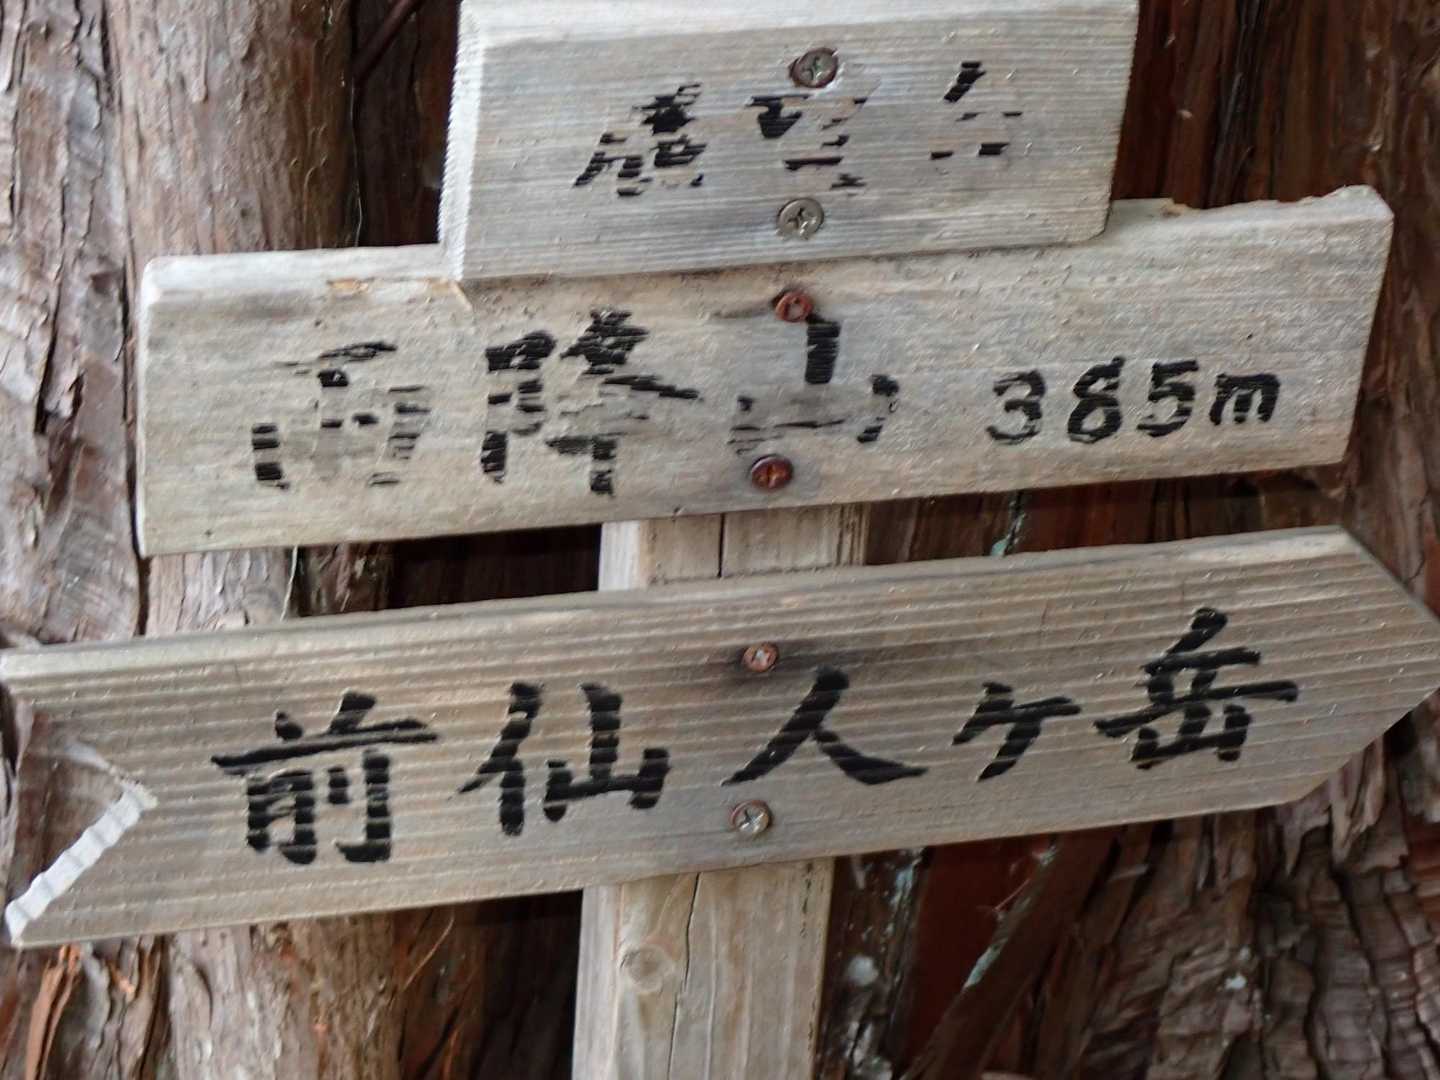 雨降山 385m
前仙人ヶ岳